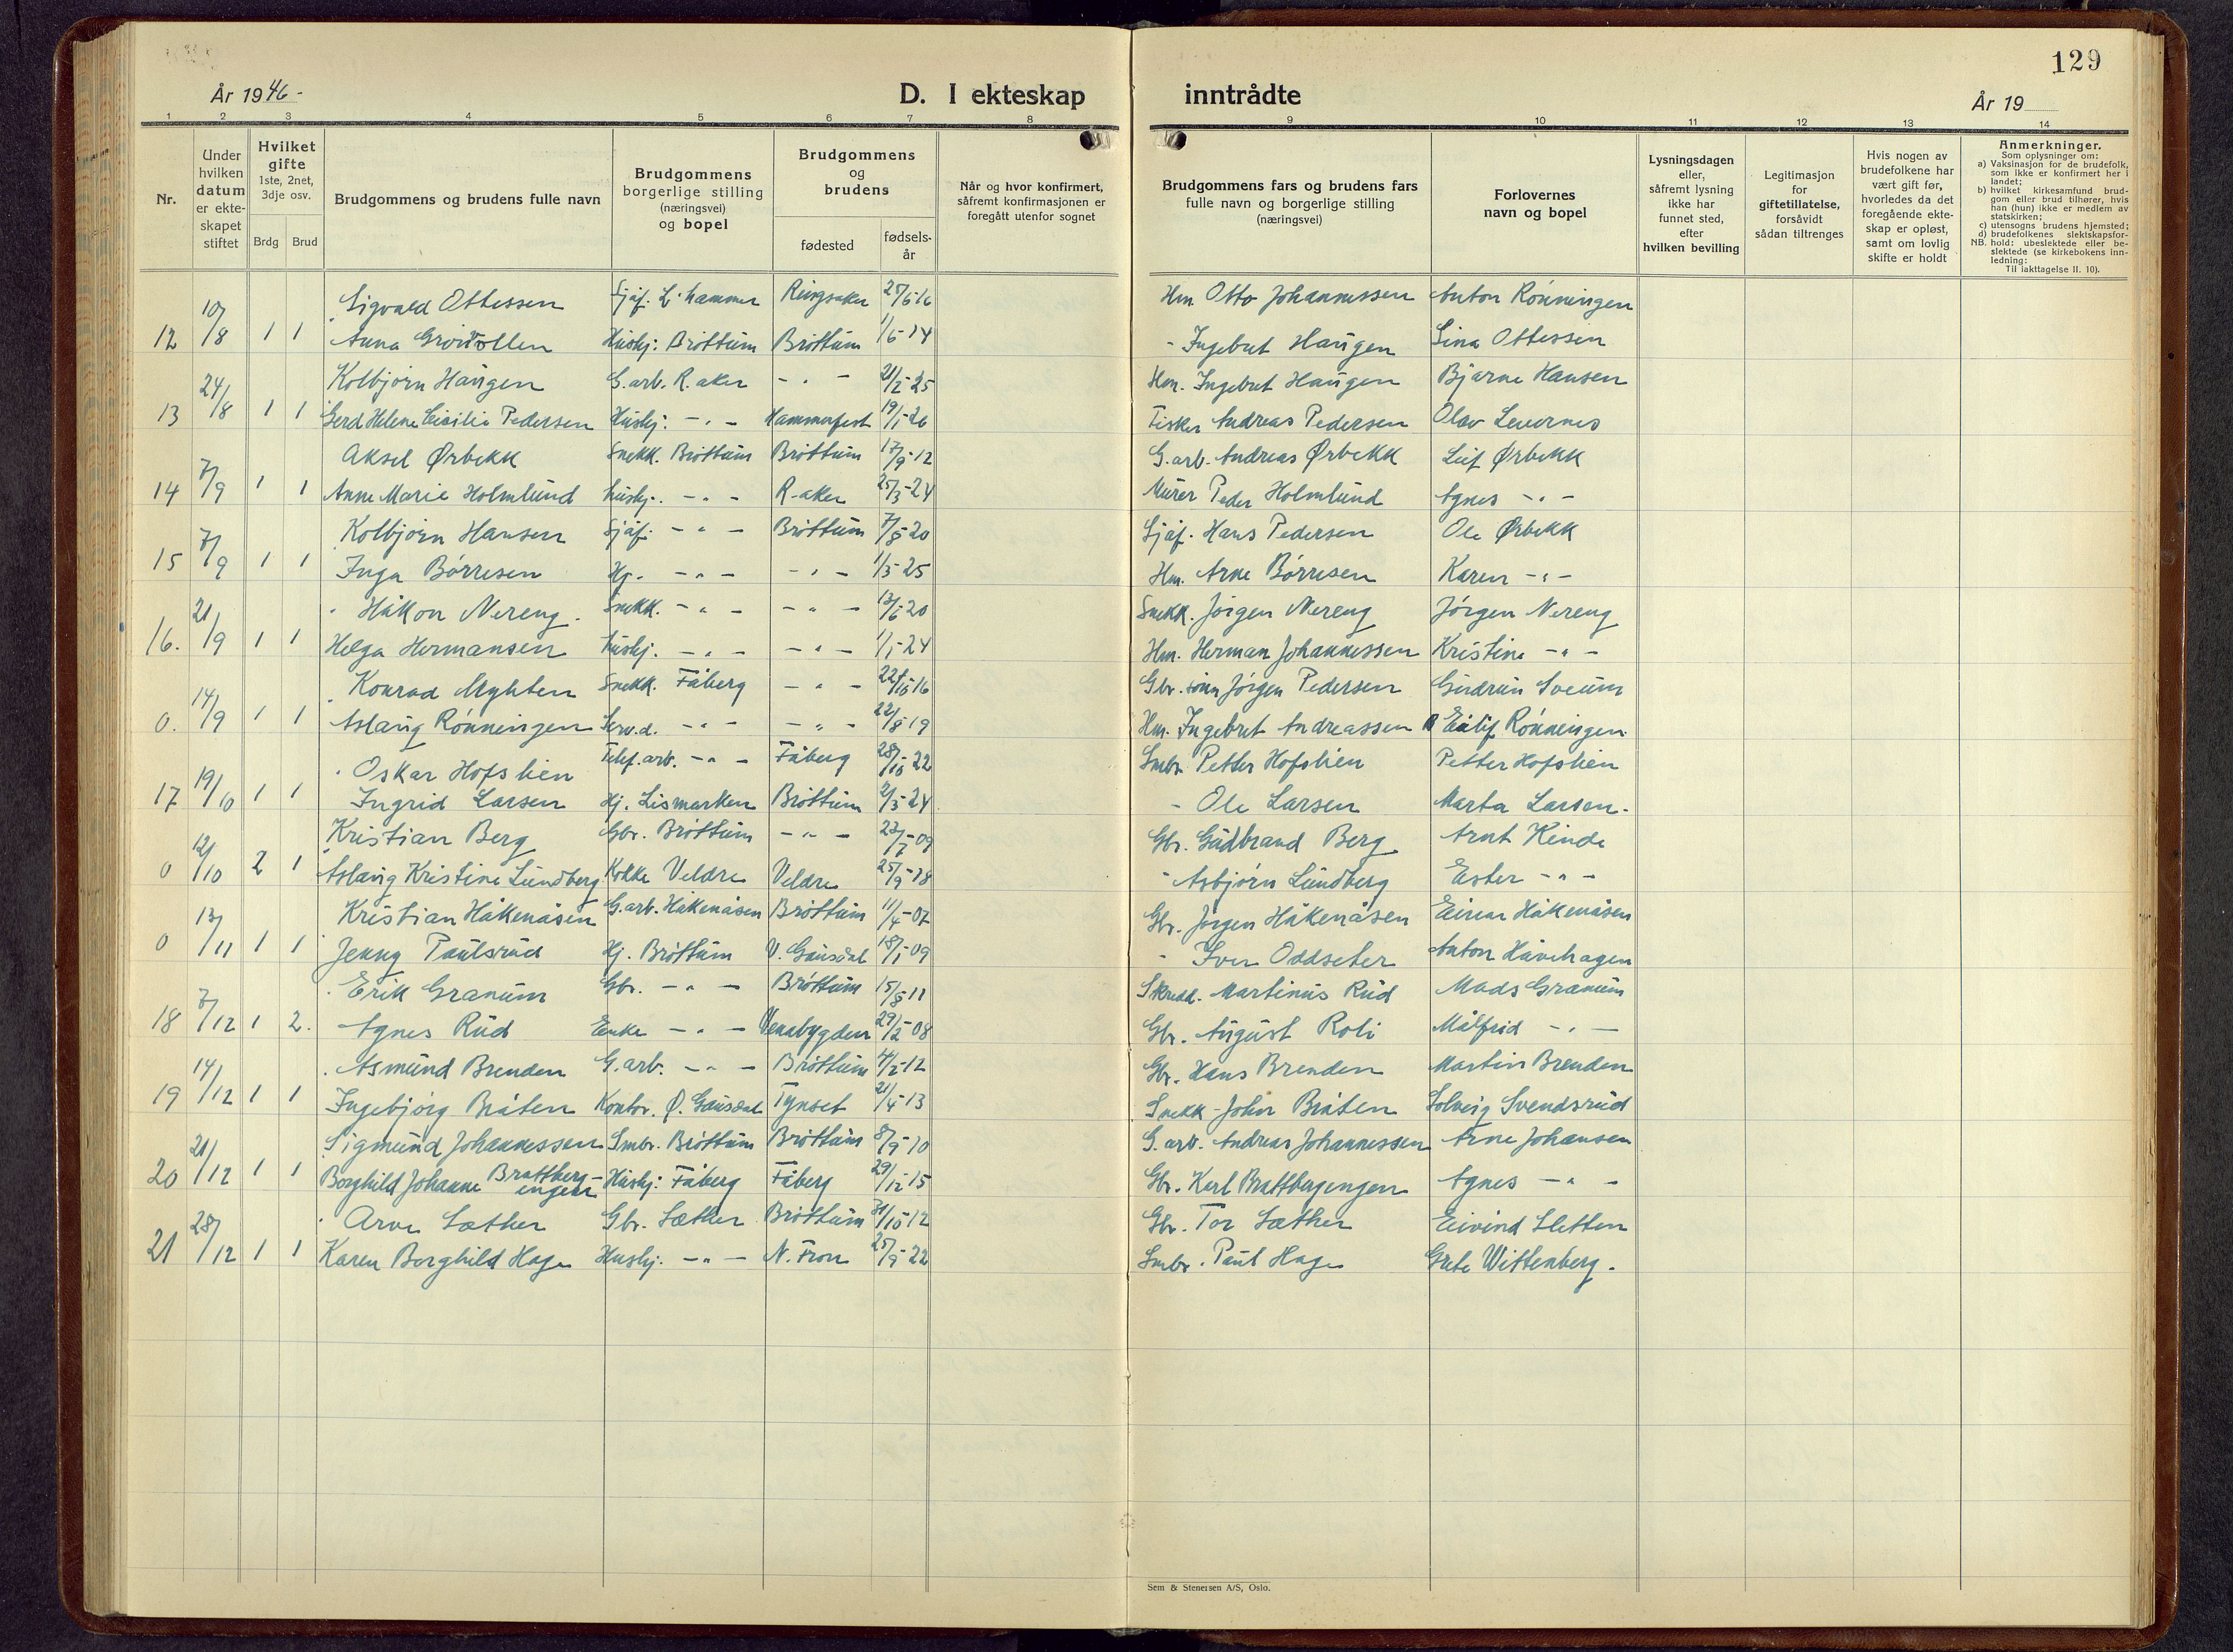 129
År 1946-
D. I ekteskap inntrådte
År 19
1 2 3 4 5 6 7 8 9 10 11 12 13 14
Nr.
Under hvilken datum er ekteskapet stiftet
Hvilket gifte 1ste, 2net, 3dje osv.
Brdg Brud
Brudgommens og brudens fulle navn
Brudgommens borgerlige stilling (næringsvei) og bopel
Brudgommens og brudens
fødested
fødsels-år
Når og hvor konfirmert, såfremt konfirmasjonen er foregått utenfor sognet
Brudgommens fars og brudens fars fulle navn og borgerlige stilling (næringsvei)
Forlovernes navn og bopel
Lysningsdagen eller, såfremt lysning ikke har funnet sted, efter hvilken bevilling
Legitimasjon for giftetillatelse, forsåvidt sådan tiltrenges
Hvis nogen av brudefolkene har vært gift før, hvorledes da det foregående ekteskap er opløst, samt om lovlig skifte er holdt
Anmerkninger.
Som oplysninger om:
a) Vaksinasjon for de brudefolk, som ikke er konfirmert her i landet;
b) hvilket kirkesamfund brudgom eller brud tilhører, hvis han (hun) ikke er medlem av statskirken;
c) utensogns brudens hjemsted;
d) brudefolkenes slektskapsforhold: ubeslektede eller beslektede (se kirkebokens innledning:
NB.
Til iakttagelse II. 10).
Sigvald Ottessen Sjåf. L.hammer Ringsaker 27/5 16 Hm. Otto Johannessen Anton Rönningen
12 10/8 1 1 Anna Hushj. Bröttum Bröttum 1/5-14 - Ingebret Haugen Lina Ottessen
Kolbjörn Haugen G.arb. R.aker - " - 21/2-25 Hm. Ingebret Haugen Bjarne Hansen
13 24/8 1 1 Gerd Helene Cicilie Pedersen Hushj. - " - Hammerfest 19/1-26 Fisker Andreas Pedersen Olav
Aksel Ørbekk Snekk. Bröttum Bröttum 17/9-12 G.arb. Andreas Ørbekk Leif Ørbekk
14 7/9 1 1 Anne Marie Holmlund hushj. - " - R-aker 25/3-24 Murer Peder Holmlund Agnes - " -
Kolbjörn Hansen Sjåf. - " - Bröttum 7/8-20 Sjåf. Hans Pedersen Ole Ørbekk
15 7/9 1 1 Inga Börresen Hj. - " - - " - 1/3-25 Hm. Arne Börresen Karen - " -
Håkon Nereng. Snekk. - " - - " - 13/6-20 Snekk. Jörgen Nereng Jörgen Nereng
16. 21/9 1 1 Helga Hermansen hushj. - " - - " - 1/1-24 Hm. Herman Johannessen Kristine - " -
Konrad Myhten Snekk. Fåberg - " - 22/10-16 Gbr. sönn Jörgen Pedersen Gudrun Sveum
0. 14/9 1 1 Aslaug Rönningen Serv.d. - " - - " - 22/8-19 Hm. Ingebret Andreassen Eilif Rönningen.
Oskar Hofslien Telef.arb. - " - Fåberg 28/10-22 Smbr. Petter Hofslien Petter Hofslien
17 19/10 1 1 Ingrid Larsen Hj. Lismarken Bröttum 2/3-24 - Ole Larsen Marta Larsen.
Kristian Berg Gbr. Bröttum - " - 23/7-09 Gbr. Gudbrand Berg Arnt Kinde
0 12/10 2 1 Aslaug Kristine Lundberg Kokke Veldre Veldre 25/9-18 - Asbjörn Lundberg Ester - " -
Kristian Håkenåsen G.arb. Håkenåsen Bröttum 11/4-07 Gbr. Jörgen Håkenåsen Einar Håkenåsen
0 13/11 1 1 Jenny Paulsrud Hj. Bröttum V. Gausdal 18/1-09 - Iver Oddseter Anton Håvehagen
Erik Granum Gbr. - " - Bröttum 15/8-11 Skredd. Martinus Rud Mads Granum
18 7/12 1 2. Agnes Rud Enke - " - Venabygden 29/2-08 Gbr. August Roli Målfrid - " -
Asmund Brenden G.arb. - " - Bröttum 4/2-12 Gbr. Hans Brenden Martin Brenden
19 14/12 1 1 Ingebjörg Bråten Kontor. Ø. Gausdal Tynset 21/4-13 Snekk - John Bråten Solveig Svendsrud
Sigmund Johannessen Smbr. Bröttum Bröttum 8/9-10 G.arb. Andreas Johannessen Arne Johansen
20 21/12 1 1 Borghild Johanne Brattbergengen Hushj. Fåberg Fåberg 29/12-15 Gbr. Karl Brattbergengen Agnes - " -
Arve Sæther Gbr. Sæther Bröttum 31/10-12 Gbr. Tor Sæther Eivind Sletten
21 28/12 1 1 Karen Borghild Hage Hushj. - " - N. Fron 25/9-22 Smbr. Paul Hage Grete Wittenberg.
Sem & Stenersen A/S, Oslo.